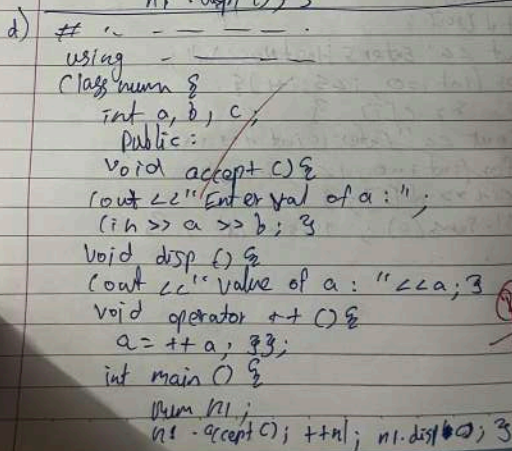 n1 . disp ( ) ; }
d) # ~ - — — — .
using - ———
Class num {
int a, b, c;
Public:
Void accept () {
Cout << "Enter val of a : ";
Cin >> a >> b; }
Void disp () {
Cout << "value of a : " << a; }
Void operator ++ () {
a = ++ a; }};
int main () {
num n1;
n1 . accept(); ++n1; n1.disp(); }